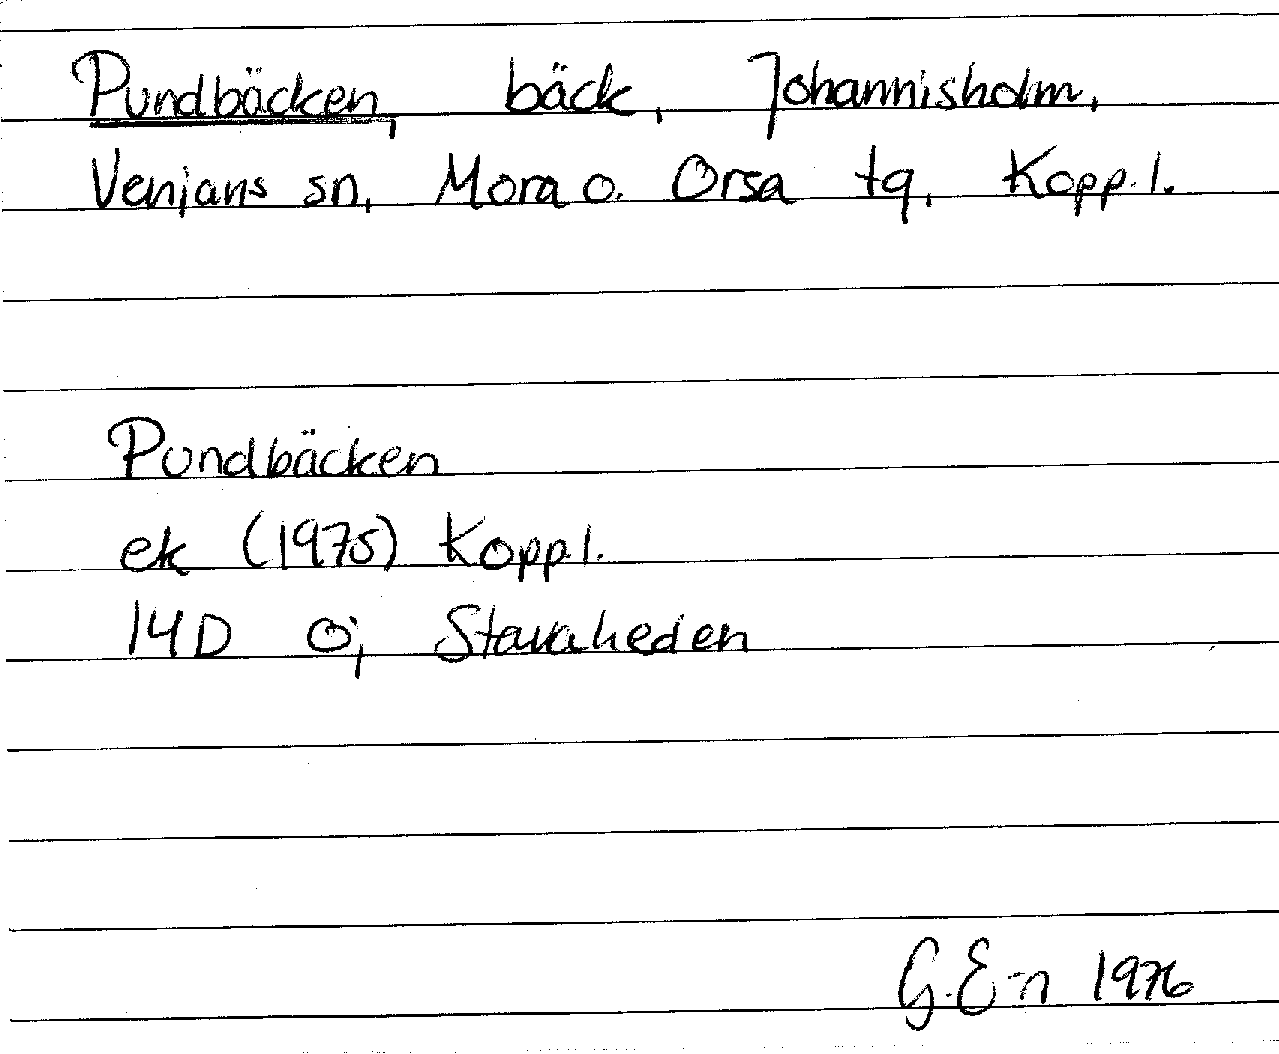 Pundbäcken, bäck, Johannisholm,
Venjans sn, Mora o. Orsa tg, Kopp.l.
Pundbäcken
ek (1975) Koppl.
14D Öj Stavaheden
G.E-n 1976